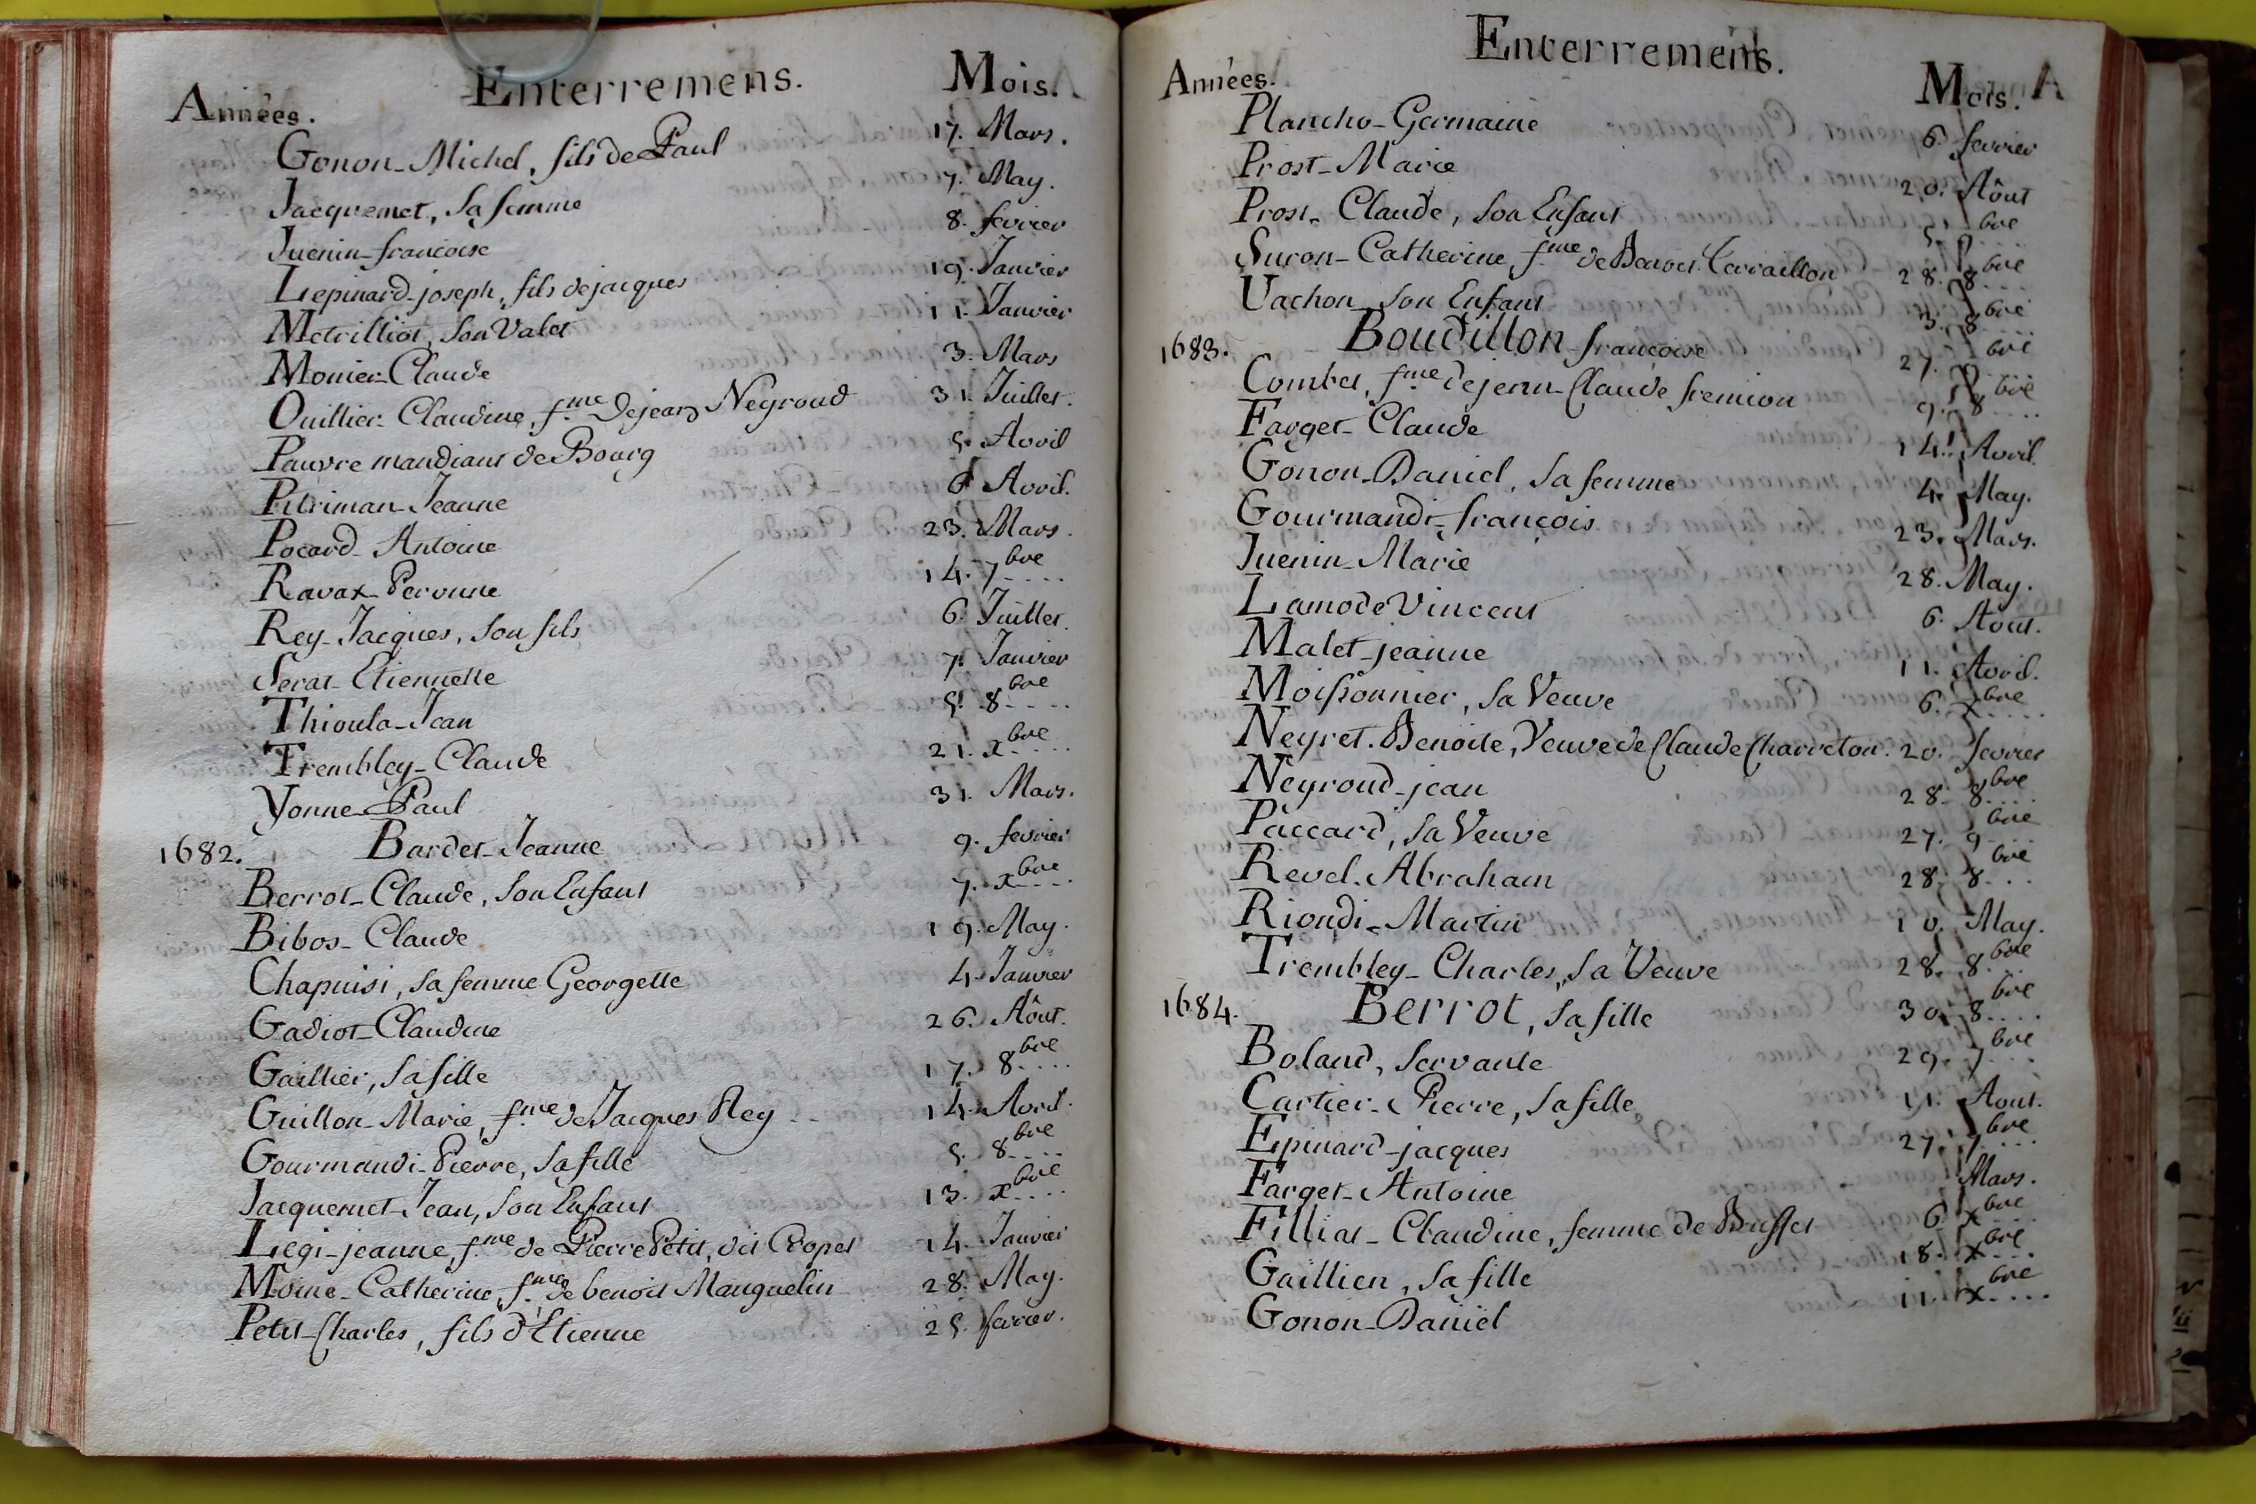 Années. Enterremens. Mois.
Gonon-Michel, fils de Paul 17. Mars.
Jacquemet, sa femme 7. May.
Juenin-francoise 8. fevrier
Lepinard-joseph, fils de jacques 19. Janvier
Metrilliot, son Valet 11. Janvier
Monier-Claude 3. Mars
Ouillier-Claudine, f.me de jean Neyroud 31. Juillet.
Pauvre mandiant de Bourg 5. Avril
Pitriman-Jeanne 6 Avril.
Pocard-Antoine 23. Mars.
Ravax-Peronne 14. 7bre....
Rey-Jacques, son fils 6. Juillet.
Serat-Etiennette 7. Janvier
Thioula-Jean 5. 8bre....
Trembley-Claude 21. xbre....
Yonne-Paul 31. Mars.
1682. Bardet-Jeanne 9. fevrier
Berrot-Claude, son Enfant 7. xbre....
Bibos-Claude 19. May.
Chapuisi, sa femme Georgette 4. Janvier
Gadiot-Claudine 26. Aôut.
Gaillier, sa fille 17. 8bre....
Guillon-Marie, f.me de Jacques Rey.. 14. Avril.
Gourmandi-Pierre, sa fille 5. 8bre....
Jacquemet-Jean, son Enfant 13. xbre....
Legi-jeanne, f.me de Pierre Petit, dit Copet 14. Janvier
Moine-Catherine, f.me de benoit Manguelin 28. May.
Petit-Charles, fils d'Etienne 25. fevrier.
Années. Enterremens. Mois.
Plancho-Germaine 6. fevrier
Prost-Marie 20. Aôut
Prost-Claude, son Enfant 5. 9bre....
Suron-Catherine, f.me de Benoit Terraillon 28. 8bre....
Vachon son Enfant 3. 8bre....
1683. Boudillon-francoise 27. 9bre....
Combet, f.me de jean-Claude fremion 9. 8bre....
Farget-Claude 14. Avril.
Gonon-Daniel, sa femme 4. May.
Gourmandi-françois 23. Mars.
Juenin-Marie 28. May.
Lamode Vincent 6. Aout.
Malet-jeanne 11. Avril.
Moissonnier, sa Veuve 6. xbre....
Neyret-Benoite, Veuve de Claude Charreton. 20. fevrier
Neyroud-jean 28. 8bre....
Paccard, sa Veuve 27. 9bre
Revel-Abraham 28. 8bre...
Riondi-Martin 10. May.
Trembley-Charles, sa Veuve 28. 8bre..
1684. Berrot, sa fille 30. 8bre....
Boland, servante 29. 7bre...
Cartier-Pierre, sa fille 11. Aout.
Epinard-jacques 27. 7bre...
Farget-Antoine Mars.
Filliat-Claudine, femme de Buffet 6. xbre....
Gaillien, sa fille 18. xbre....
Gonon-Daniel 11. xbre....